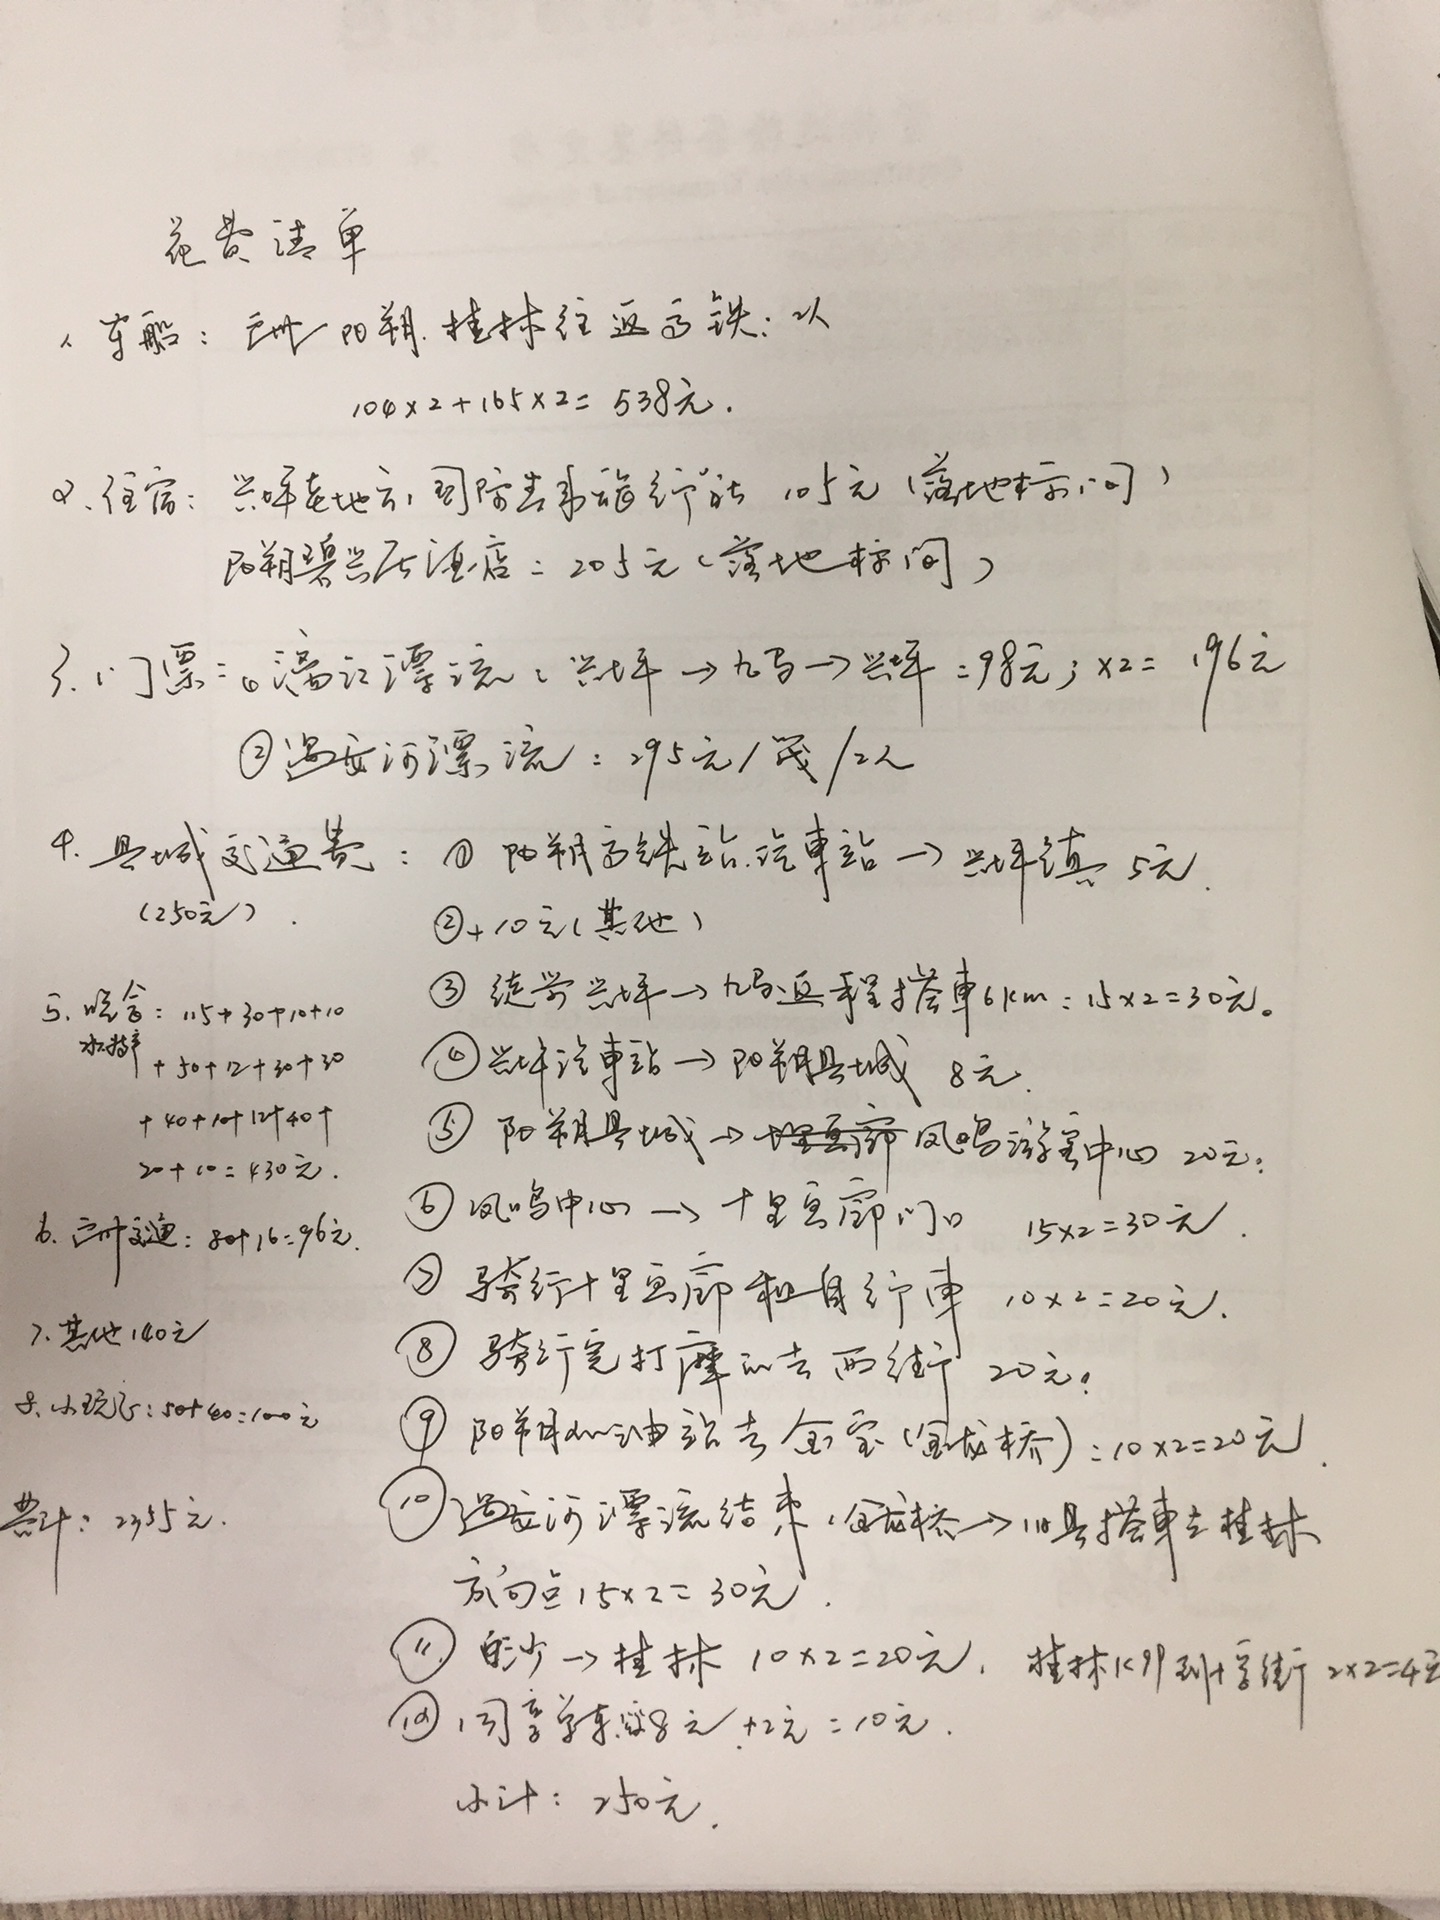 花费清单
1、车船：广州 阳朔.桂林往返高铁：2人
104×2+165×2=538元.
2、住宿：兴坪老地方国际青年旅行社 105元（落地标间）
阳朔碧兴居酒店：205元（落地标间）
3、门票：①漓江漂流：兴坪→九马→兴坪=98元；×2= 196元
②遇龙河漂流：295元/筏/2人
4. 县城交通费：① 阳朔高铁站.汽车站→兴坪镇 5元.
（250元）.
②+10元（其他）
③ 徒步兴坪→九马返程搭车6km：15×2=30元。
④兴坪汽车站→阳朔县城 8元.
⑤ 阳朔县城→凤鸣游客中心 20元；
⑥ 凤鸣中心→十里画廊门口 15×2=30元.
⑦ 骑行十里画廊租自行車 10×2=20元.
⑧ 骑行完打摩的去西街 20元；
⑨ 阳朔加油站去金宝（金龙桥）：10×2=20元.
⑩ 遇龙河漂流结束，金龙桥→县搭車去桂林
方向白15×2=30元.
⑪ 白沙→桂林 10×2=20元. 桂林K99到十字街 2×2=4元
⑫ 共享单车8元+2元=10元.
小计：250元.
5. 吃食：115+30+10+10
水特产
+50+12+30+30
+40+10+12+40+
20+10=430元.
6. 广州交通：80+16=96元.
7. 其他140元
8. 小玩乐：50+40=100元
共计：2355元.